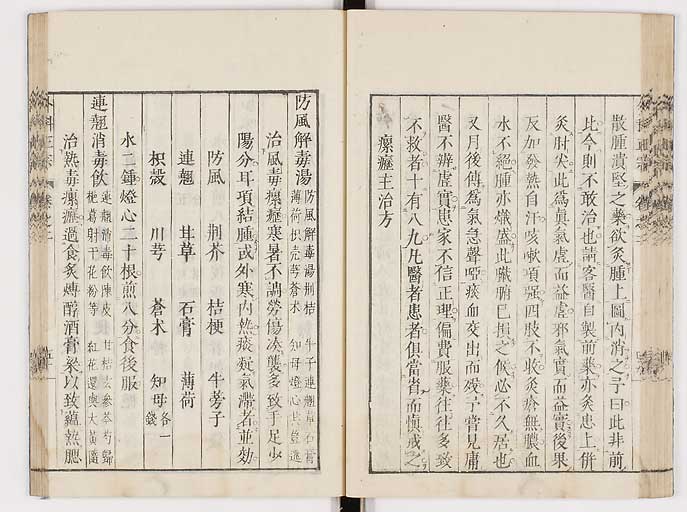 散腫潰堅之藥欲灸腫上圖內消之予曰此非前
此今則不敢治也請客醫自製前藥亦灸患上併
灸肘尖此爲眞氣虛而益虛邪氣實而益實後果
反加發熱自汗咳嗽項強四肢不收灸瘡無膿血
水不絕腫亦熾盛此臟腑已損之候必不久居也
又月後傳爲氣急聲啞痰血交出而歿予嘗見庸
醫不辨虛實患家不信正理偏費服藥往往多致
不救者十有八九凡醫者患者俱當省而慎戒之
瘰癧主治方
防風解毒湯 防風解毒湯荊桔 牛子連翹草石膏 薄荷枳壳芎蒼朮 知母燈心
治風毒瘰癧寒暑不調勞傷湊襲多致手足少
陽分耳項結腫或外寒內熱痰凝氣滯者並効
防風 荊芥 桔梗 牛蒡子
連翹 甘草 石膏 薄荷
枳殼 川芎 蒼朮 知母 各一錢
水二鍾燈心二十根煎八分食後服
連翹消毒飲 連翹消毒飲陳皮 甘桔玄參芩芍歸 梔葛射干花粉等 紅花還與大黃隨
治熱毒瘰癧過食炙煿醇酒膏粱以致蘊熱腮